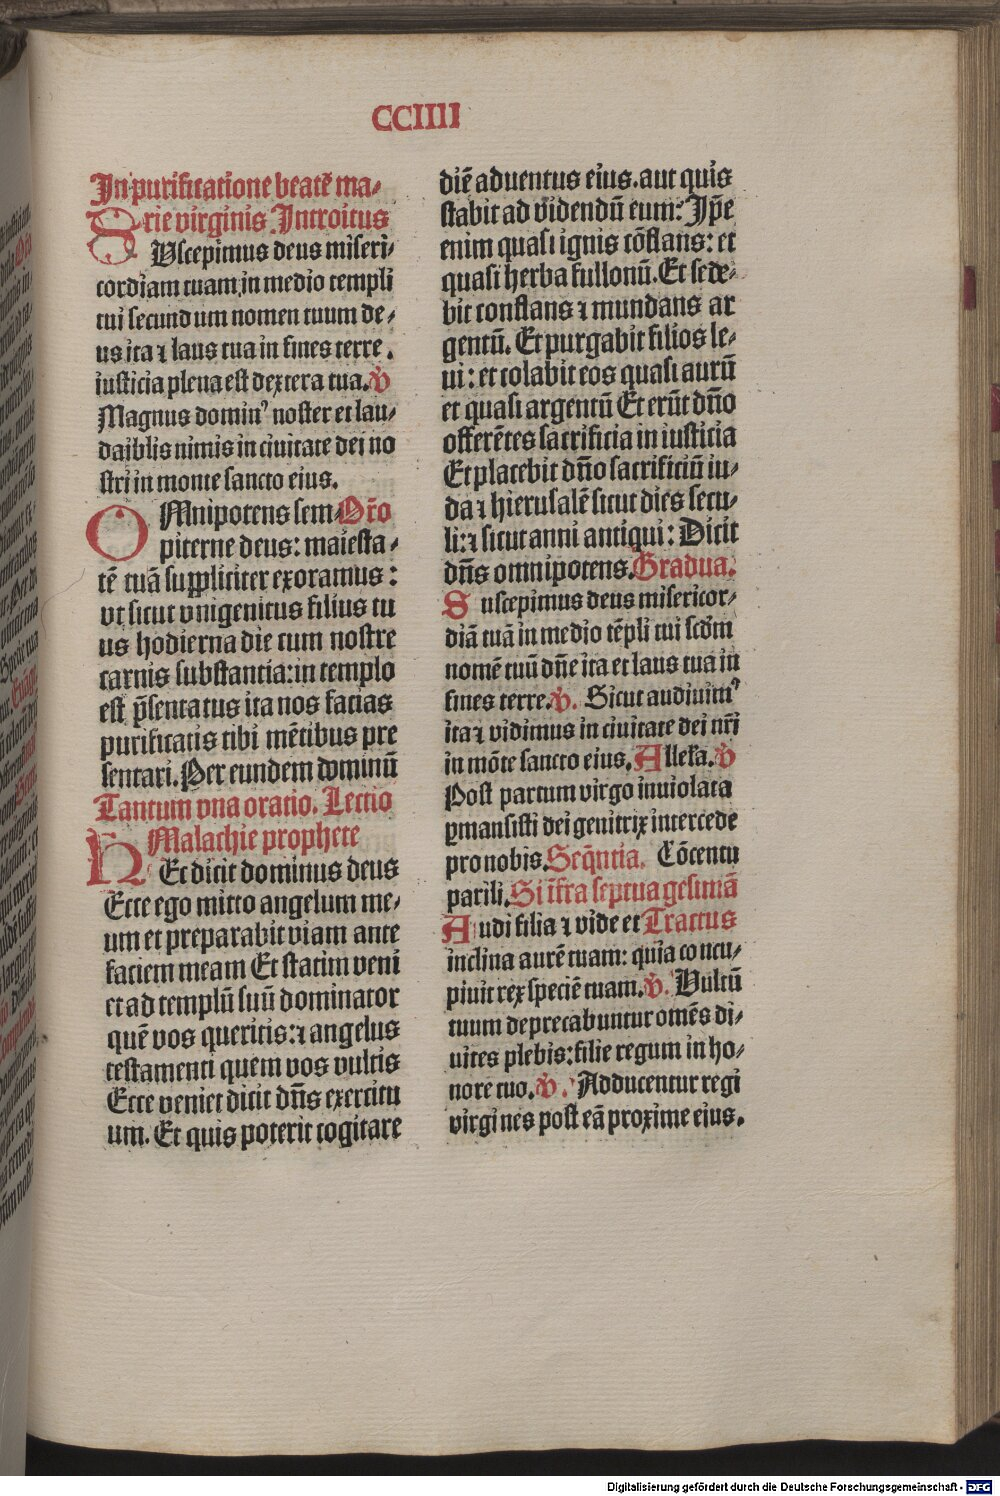 CCIIII
In purificatione beatē ma-
rie virginis Introitus
SUscepimus deus miseri-
cordiam tuam in medio templi
tui secundum nomen tuum de-
us ita ⁊ laus tua in fines terre.
iusticia plena est dextera tua. ℣
Magnus dominꝰ noster et lau-
daiblis nimis in ciuitate dei no
stri in monte sancto eius.
OMnipotens sem- Or̄o
piterne deus: maiesta-
tē tuā suppliciter exoramus:
vt sicut vnigenitus filius tu
us hodierna die cum nostre
carnis substantia: in templo
est p̄sentatus ita nos facias
purificatis tibi mētibus pre
sentari. Per eundem dominū
Tantum vna oratio. Lectio
Malachie prophete
HEc dicit dominus deus
Ecce ego mitto angelum me-
um et preparabit viam ante
faciem meam Et statim veni
et ad templū suū dominator
quē vos queritis: ⁊ angelus
testamenti quem vos vultis
Ecce veniet dicit dn̄s exercitu
um. Et quis poterit cogitare
diē aduentus eius. aut quis
stabit ad videndū eum: Ip̄e
enim quasi ignis cōflans: et
quasi herba fullonū. Et sede-
bit conflans ⁊ mundans ar
gentū. Et purgabit filios le-
ui: et colabit eos quasi aurū
et quasi argentū Et erūt dn̄o
offerētes sacrificia in iusticia
Et placebit dn̄o sacrificiū iu-
da ⁊ hierusalē sicut dies secu-
li: ⁊ sicut anni antiqui: Dicit
dn̄s omnipotens. Gradua.
Suscepimus deus misericor-
diā tuā in medio tēpli tui scd̄m
nomē tuū dn̄e ita et laus tua in
fines terre. ℣. Sicut audiuimꝰ
ita ⁊ vidimus in ciuitate dei nr̄i
in mōte sancto eius. Alleła. ℣
Post partum virgo inuiolata
ꝑmansisti dei genitrix intercede
pro nobis. Seq̄ntia. Cōcentu
parili. Si īfra septuagesimā
Audi filia ⁊ vide et Tractus
inclina aurē tuam: quia concu-
piuit rex speciē tuam. ℣. Vultū
tuum deprecabuntur omēs di-
uites plebis: filie regum in ho-
nore tuo. ℣. Adducentur regi
virgines post eā proxime eius.
Digitalisierung gefördert durch die Deutsche Forschungsgemeinschaft - DFG